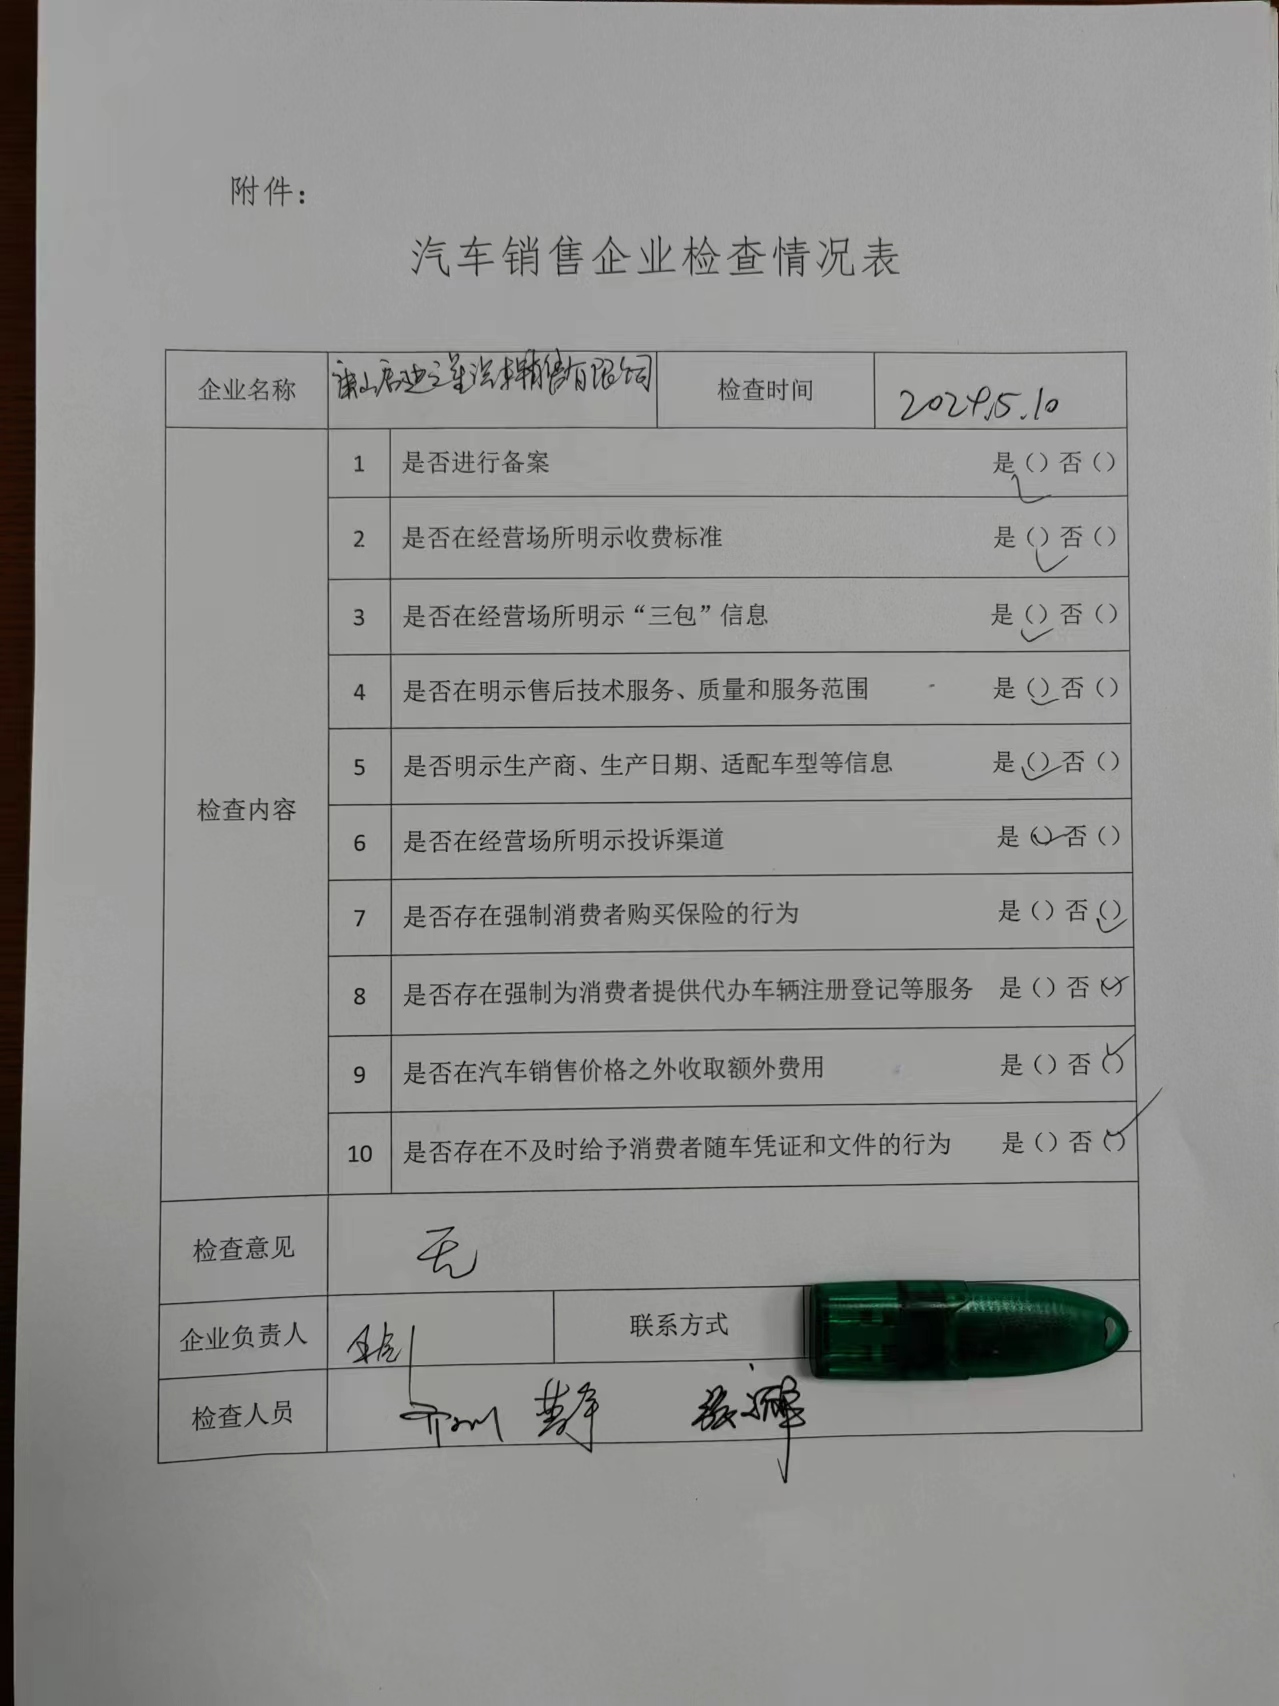 附件：
汽车销售企业检查情况表
企业名称 唐山 之星汽车销售有限公司 检查时间 2024.5.10
检查内容
1 是否进行备案 是（）否（）
2 是否在经营场所明示收费标准 是（）否（）
3 是否在经营场所明示“三包”信息 是（）否（）
4 是否在明示售后技术服务、质量和服务范围 是（）否（）
5 是否明示生产商、生产日期、适配车型等信息 是（）否（）
6 是否在经营场所明示投诉渠道 是（）否（）
7 是否存在强制消费者购买保险的行为 是（）否（）
8 是否存在强制为消费者提供代办车辆注册登记等服务 是（）否（）
9 是否在汽车销售价格之外收取额外费用 是（）否（）
10 是否存在不及时给予消费者随车凭证和文件的行为 是（）否（）
检查意见 无
企业负责人 联系方式
检查人员